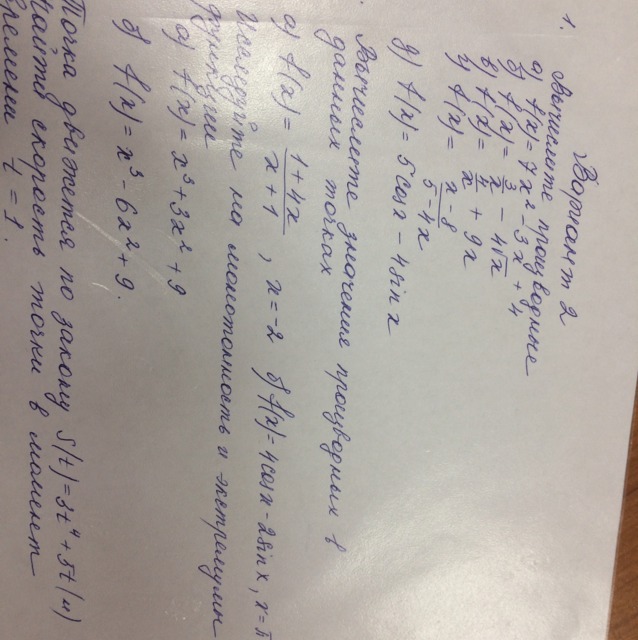 Вариант 2
1. Вычислите производные
а) f(x) = 7x² - 3x + 4
б) f(x) = 3/x - 4√x
в) f(x) = 4/x + 9x
г) f(x) = x-8 / 5-4x
д) f(x) = 5cosx - 4sinx
Вычислите значение производных в
данных точках
а) f(x) = 1+4x / x+1 , x = -2 б) f(x) = 4cosx - 2sinx, x = π
на монотонность и экстремумы
функции
а) f(x) = x³ + 3x² + 9
б) f(x) = x³ - 6x² + 9.
Точка движется по закону S(t) = 3t⁴ + 5t (м)
найти скорость точки в момент
времени t = 1.